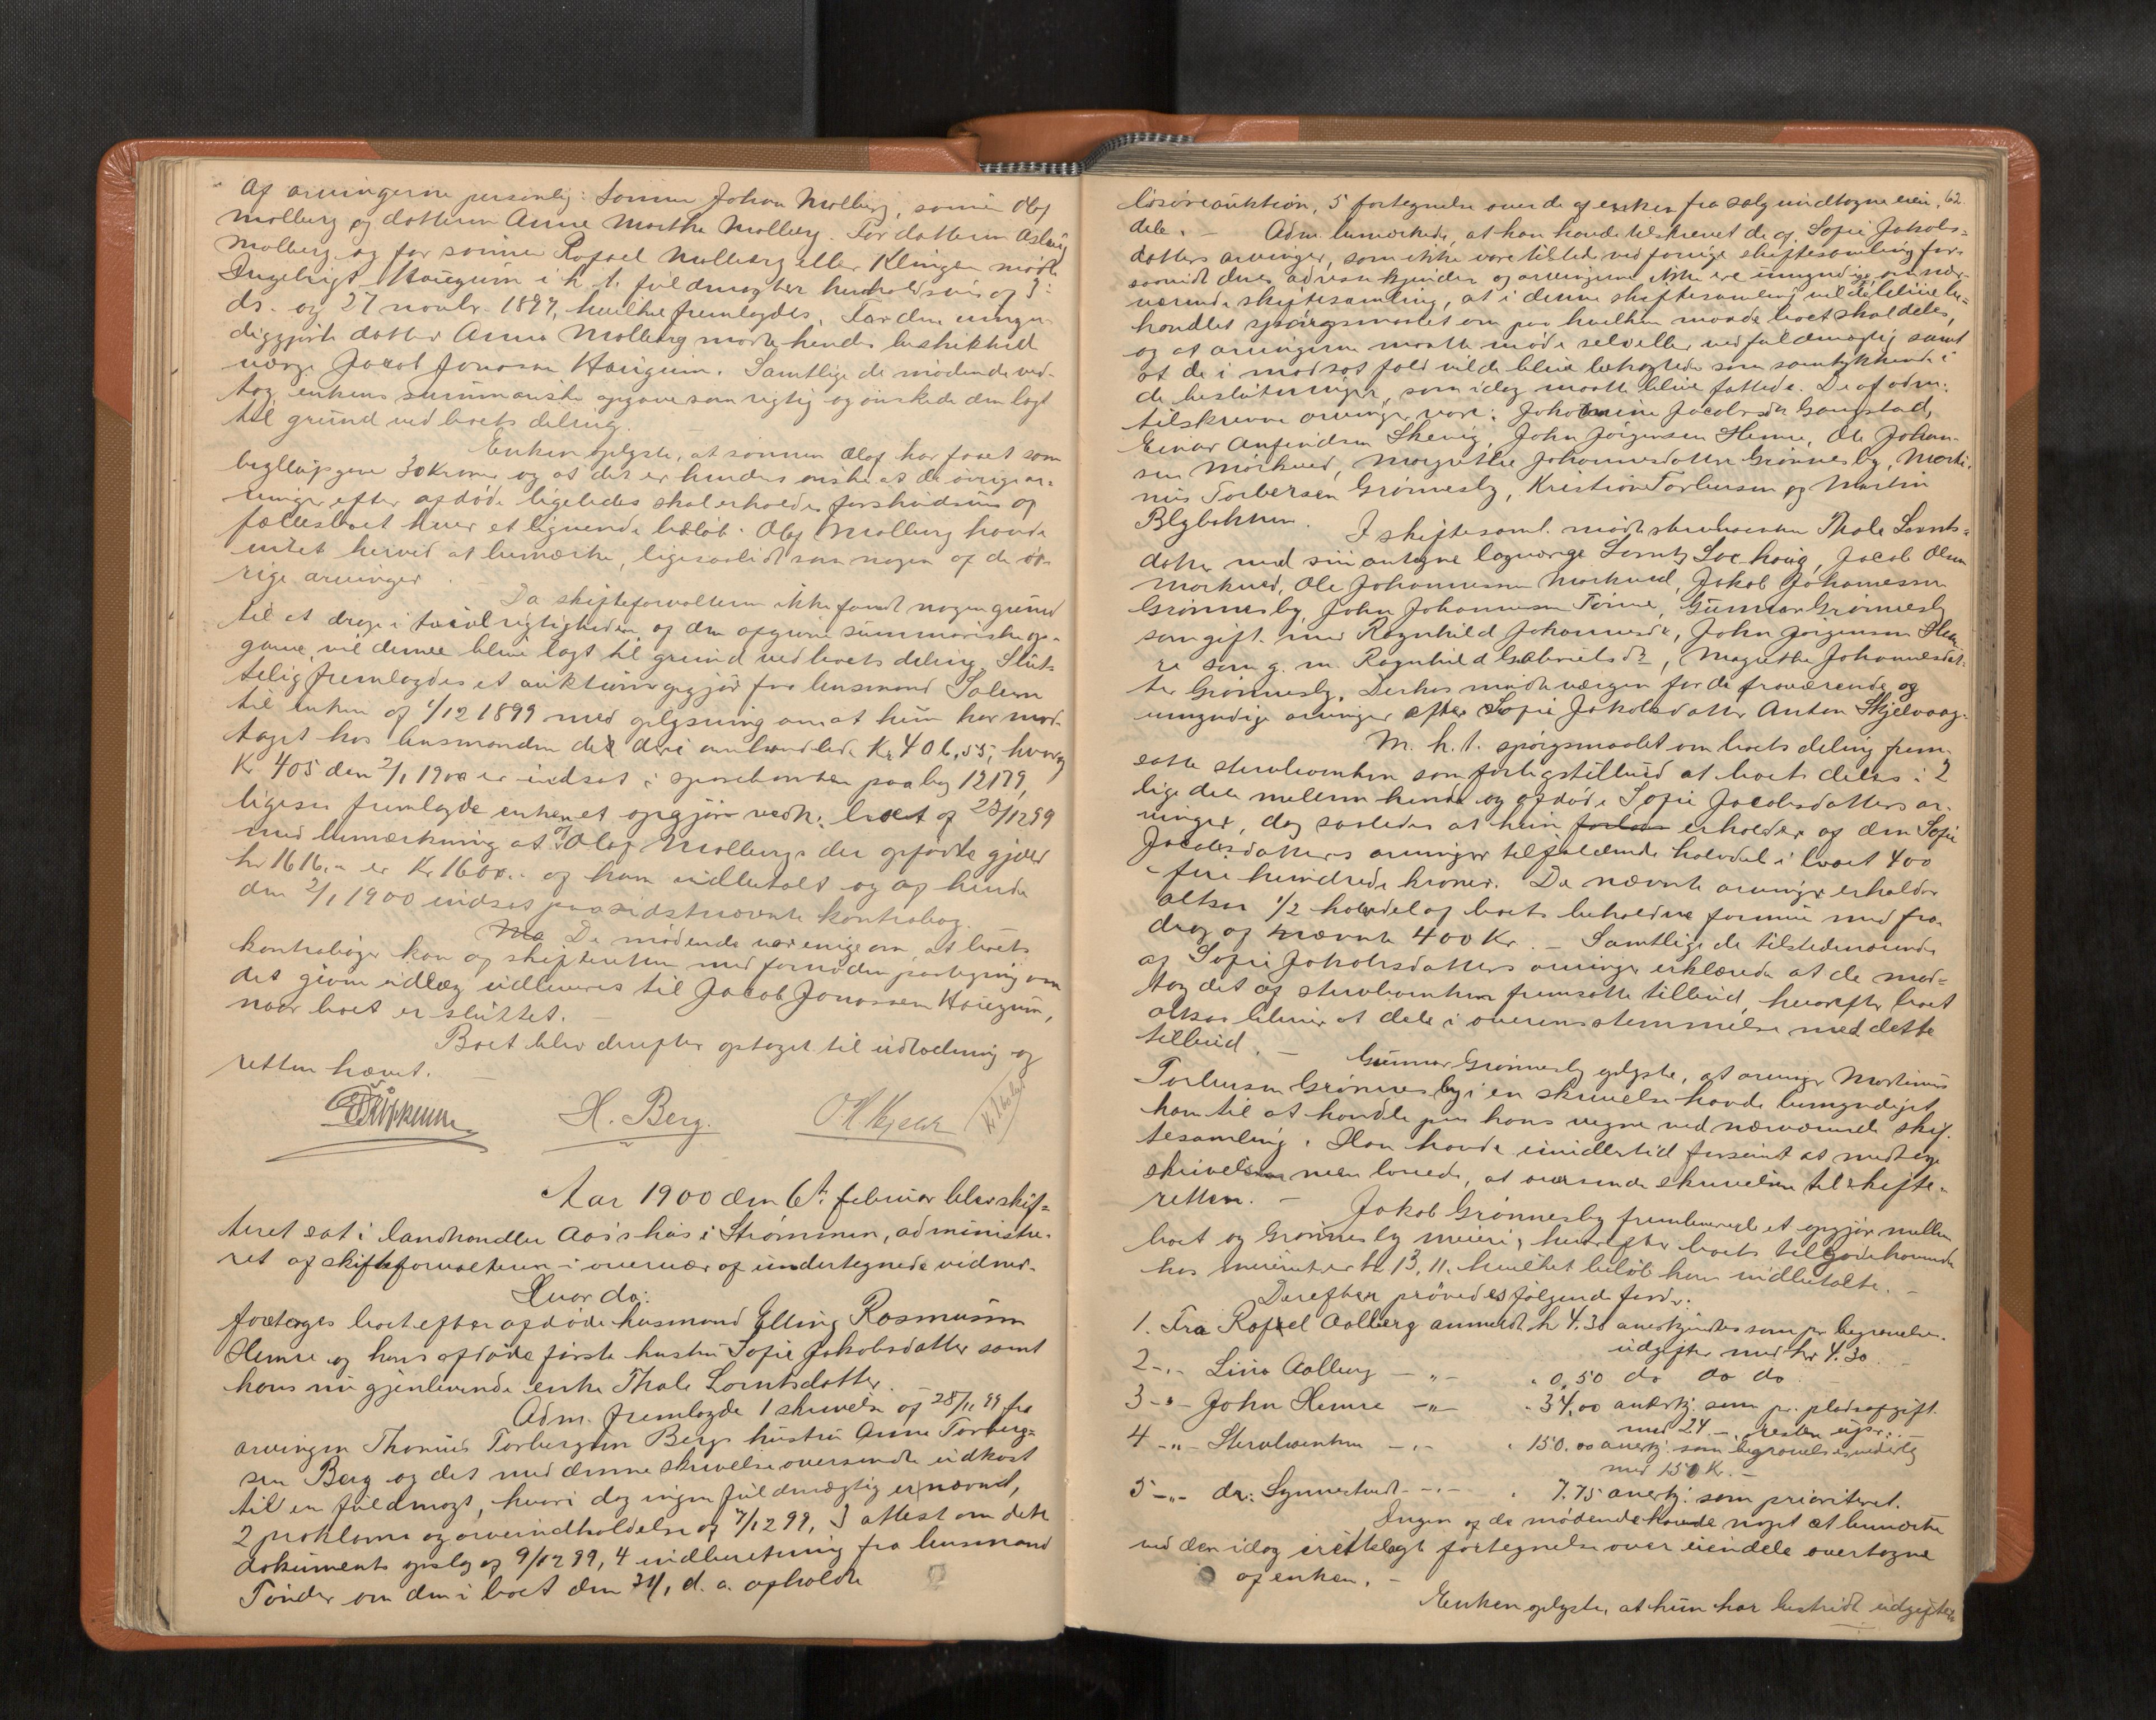 Af arvingerne personlig: Sønnen Johan Molberg, sønnen Olaf
Molberg og datteren Anne Marthe Molberg. For datteren Aslaug
Molberg og for sønnen Rafael Molberg eller Klingen mødte
Ingebrigt Haugum i h. t. fuldmagter henholdsvis af 3.
ds. og 27 novbr. 1899, hvilke fremlagdes. For den umyn-
diggjorte datter Anna Molberg mødte hendes beskikkede
værge Jacob Jonasen Haugum. Samtlige de mødende ved-
tog enkens summariske opgave som rigtig og ønskede den lagt
til grund ved boets deling.
Enken oplyste, at sønnen Olaf har faaet som
bryllupsgave 30 Kroner og at det er hendes ønske at de øvrige ar-
vinger efter afdøde ligeledes skal erholde forskudsvis af
fællesboet hver et lignende beløb. Olaf Molberg havde
intet herved at bemærke, ligesaalidt som nogen af de øv-
rige arvinger.
Da skifteforvalteren ikke fandt nogen grund
til at drage i tvivl rigtigheden af den afgivne summariske op-
gave, vil denne blive lagt til grund ved boets deling. Slut-
telig fremlagdes et auktionsopgjør fra lensmand Solem
til enken af 1/12 1899 med oplysning om at hun har mod-
taget hos lensmanden det deri omhandlede Kr 406,55, hvoraf
Kr 405 den 2/1 1900 er indsat i sparebanken paa bog 12179,
ligesaa fremlagde enken et opgjør vedk. boet af 23/12 99
med bemærkning at Olaf Molbergs der opførte gjæld
kr 1616.- er Kr 1600.- af ham indbetalt og af hende
den 2/1 1900 indsat paa sidstnævnte kontrabog.
De mødende var enige om, at boets
kontrabøger kan af skifteretten med fornøden paategning om
det givne udlæg udleveres til Jacob Jonassen Haugum,
naar boet er sluttet.
Boet blev derefter optaget til udlodning og
retten hævet.
H. Berg. O H Kjelk
Aar 1900 den 6te februar blev skif-
teret sat i landhandler Aas's hus i Strømmen, administre-
ret af skifteforvalteren i overvær af undertegnede vidner.
Hvorda:
foretoges boet efter afdøde husmand Elling Rasmussen
Hemre og hans afdøde første hustru Sofie Jakobsdatter samt
hans nu gjenlevende enke Thale Lorntsdatter.
Adm. fremlagde 1 skrivelse af 28/11 99 fra
arvingen Thomas Torbergsen Bergs hustru Anne Torberg-
sen Berg og det med denne skrivelse oversendte udkast
til en fuldmagt, hvori dog ingen fuldmægtig er nævnt,
2 proklama og arveindkaldelse af 7/12 99, 3 attest om dette
dokuments opslag af 9/12 99, 4 indberetning fra lensmand
Tønder om den i boet den 31/1 d. a. afholdte
62.
løsøreauktion, 5 fortegnelse over de af enken fra salg undtagne eien-
dele. - Adm. bemærkede, at han havde tilskrevet de af Sofie Jakobs-
datters arvinger, som ikke vare tilstede ved forrige skiftesamling for-
saavidt deres adresse kjendes og arvingerne ikke ere umyndige om nær-
værende skiftesamling, at i denne skiftesamling vil blive be-
handlet spørgsmaalet om paa hvilken maade boet skal deles,
og at arvingerne maatte møde selv eller ved fuldmægtig samt
at de i modsat fald vilde blive betragtede som samtykkende i
de beslutninger, som idag maatte blive fattede. De af adm.
tilskrevne arvinger vare: Johannine Jacobsdr Gangstad,
Einar Anfindsen Skevig, John Jørgensen Hemre, Ole Johan-
sen Mørkved, Margrethe Johannesdatter Grønnesby, Marti-
nus Torbersen Grønnesby, Kristian Torbersen og Martin
Blybakken.
I skiftesaml. mødte sterboenken Thale Lornts-
datter med sin antagne lagværge Lornts Lochaug, Jacob Olsen
Mørkved, Ole Johannessen Mørkved, Jakob Johannessen
Grønnesby, John Johannessen Tørne, Gunnar Grønnesby
som gift med Ragnhild Johannesdr, John Jørgensen Hem-
re som g. m. Ragnhild Gabrielsdr, Magrethe Johannesdat-
ter Grønnesby. Derhos mødte værgen for de fraværende og
umyndige arvinger efter Sofie Jakobsdatter Anton Skjelvaag.
M. h. t. spørgsmaalet om boets deling frem-
satte sterboenken som forligstilbud at boet deles i 2
lige dele mellem hende og afdøde Sofie Jacobsdatters ar-
vinger, dog saaledes at hun erholder af den Sofie
Jacobsdatters arvinger tilfaldende halvdel i boet 400
- fire hundrede kroner. De nævnte arvinger erholder
altsaa 1/2 halvdel af boets beholdne formue med fra-
drag af nævnte 400 Kr. - Samtlige de tilstedeværende
af Sofie Jakobsdatters arvinger erklærede at de mod-
tog det af sterboenken fremsatte tilbud, hvorefter boet
altsaa bliver at dele i overensstemmelse med dette
tilbud. -
Gunnar Grønnesby oplyste, at arving Martinus
Torbersen Grønnesby i en skrivelse havde bemyndiget
ham til at handle paa hans vegne ved nærværende skif-
tesamling. Han havde imidlertid forsømt at medtage
skrivelsen men lovede, at oversende skrivelsen til skifte-
retten. -
Jakob Grønnesby fremleverede et opgjør mellem
boet og Grønnesby meieri, hvorefter boets tilgodehavende
hos meieriet er kr 13,11, hvilket beløb han indbetalte. -
Derefter prøvedes følgende fordr.:
1. Fra Rafael Aalberg anmeldt kr 4.30 anerkjendes som pr begravelses-
udgifter med kr 4.30. -
2 -"- Lina Aalberg -"- " 0,50 do do do -
3 -"- John Hemre -"- " 34,00 anerkj. som pr. pladsafgift
med 24 -, resten upr. -
4 -"- Sterboenken -"- " 150.00 anerkj. som begravelsesudlæg
med 150 Kr. -
5 -"- dr. Synnestvedt -"- " 7.75 anerkj. som prioriteret.
Ingen af de mødende havde noget at bemærke
ved den idag iretttelagt fortegnelse over eiendele overtagne
af enken. -
Enken oplyste, at hun har bestridt udgifter